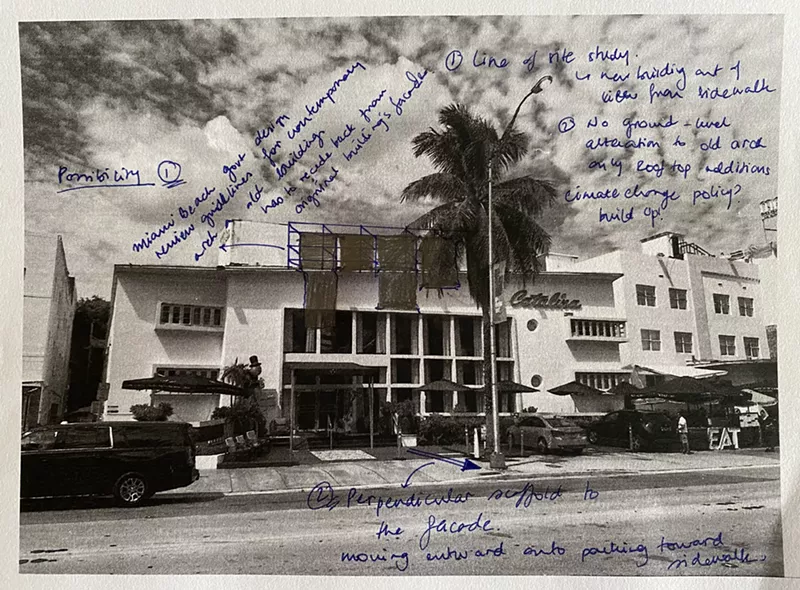 ① Line of site study.
↳ new building out of
view from sidewalk
② No ground-level
alteration to old arch
only Roof top additions
climate change policy?
build up!
Possibility ①
miami beach govt design
review guidelines for contemporary
arch. not building
has to recede back from
original building's facade
Catalina
EAT
② Perpendicular scaffold to
the facade.
moving outward onto parking toward
sidewalk.